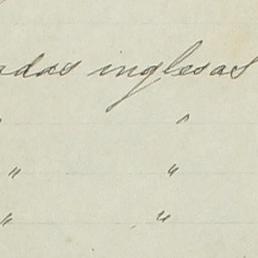 adas inglesas
" "
" "
" "